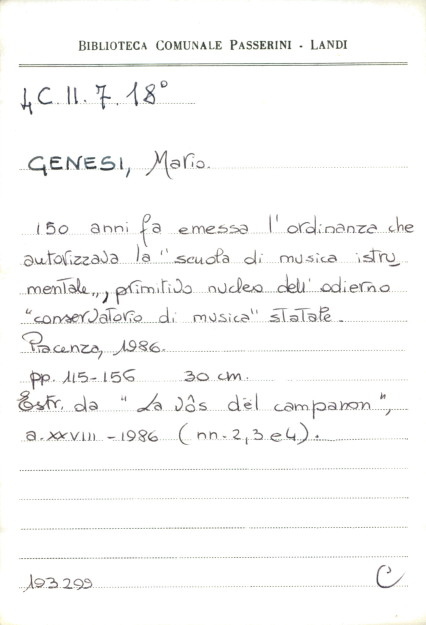 BIBLIOTECA COMUNALE PASSERINI - LANDI
4C.II.7.18°
GENESI, Mario.
150 anni fa emessa l'ordinanza che
autorizzava la "scuola di musica istru
mentale", primitivo nucleo dell'odierno
"conservatorio di musica" statale.
Piacenza, 1986.
pp. 115-156 30 cm.
Estr. da "La vôs del campanon",
a. XXVIII - 1986 (nn. 2, 3 e 4).
193.299 C